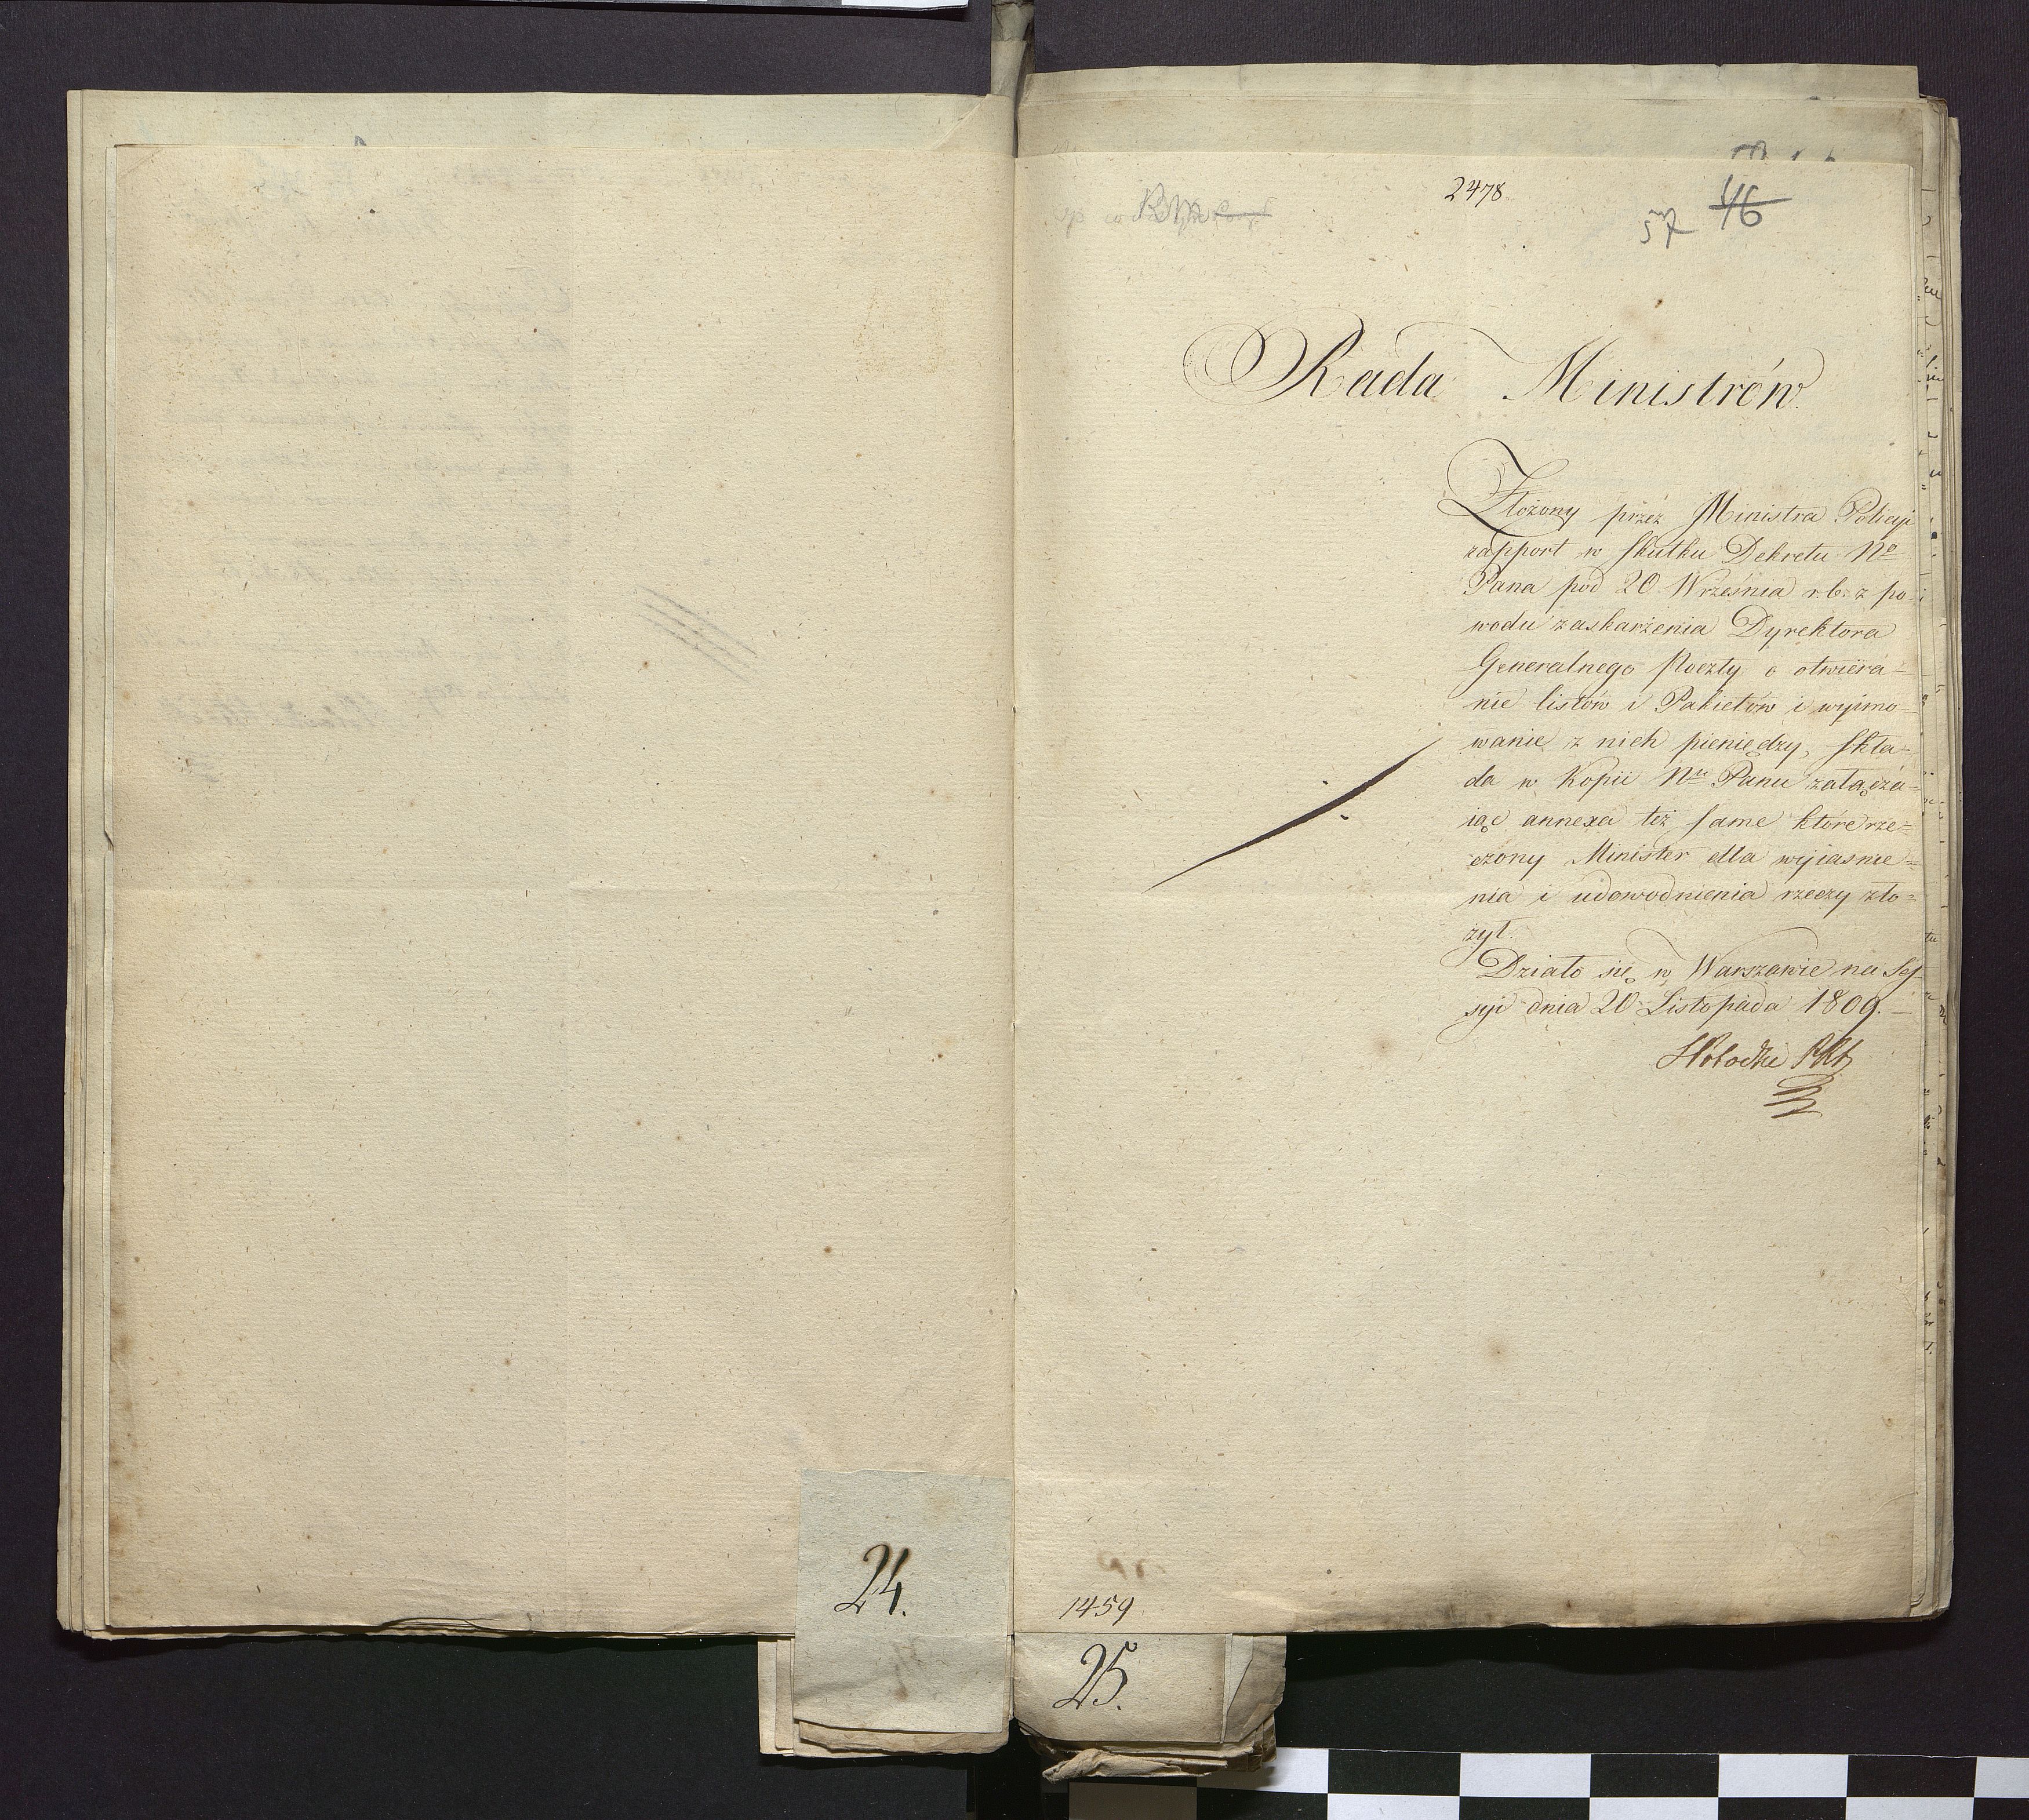 2478
57 46
Rada Ministrów.
Złożony przéz Ministra Policyi
rapport w skutku Dekretu Nº
Pana pod 20 Września r.b. z po-
wodu zaskarżenia Dyrektora
Generalnego Poczty o otwiera-
nie listów i Pakietów i wyimo-
wanie z nich pieniędzy, skła-
da w Kopii Nu Panu załącza-
iąc annexa też same które rze-
czony Minister dla wyiasnie-
nia i udowodnienia rzeczy zło-
żył.
Działo się w Warszawie na Ses-
syi dnia 20 Listopada 1809.
24.
1459
25.